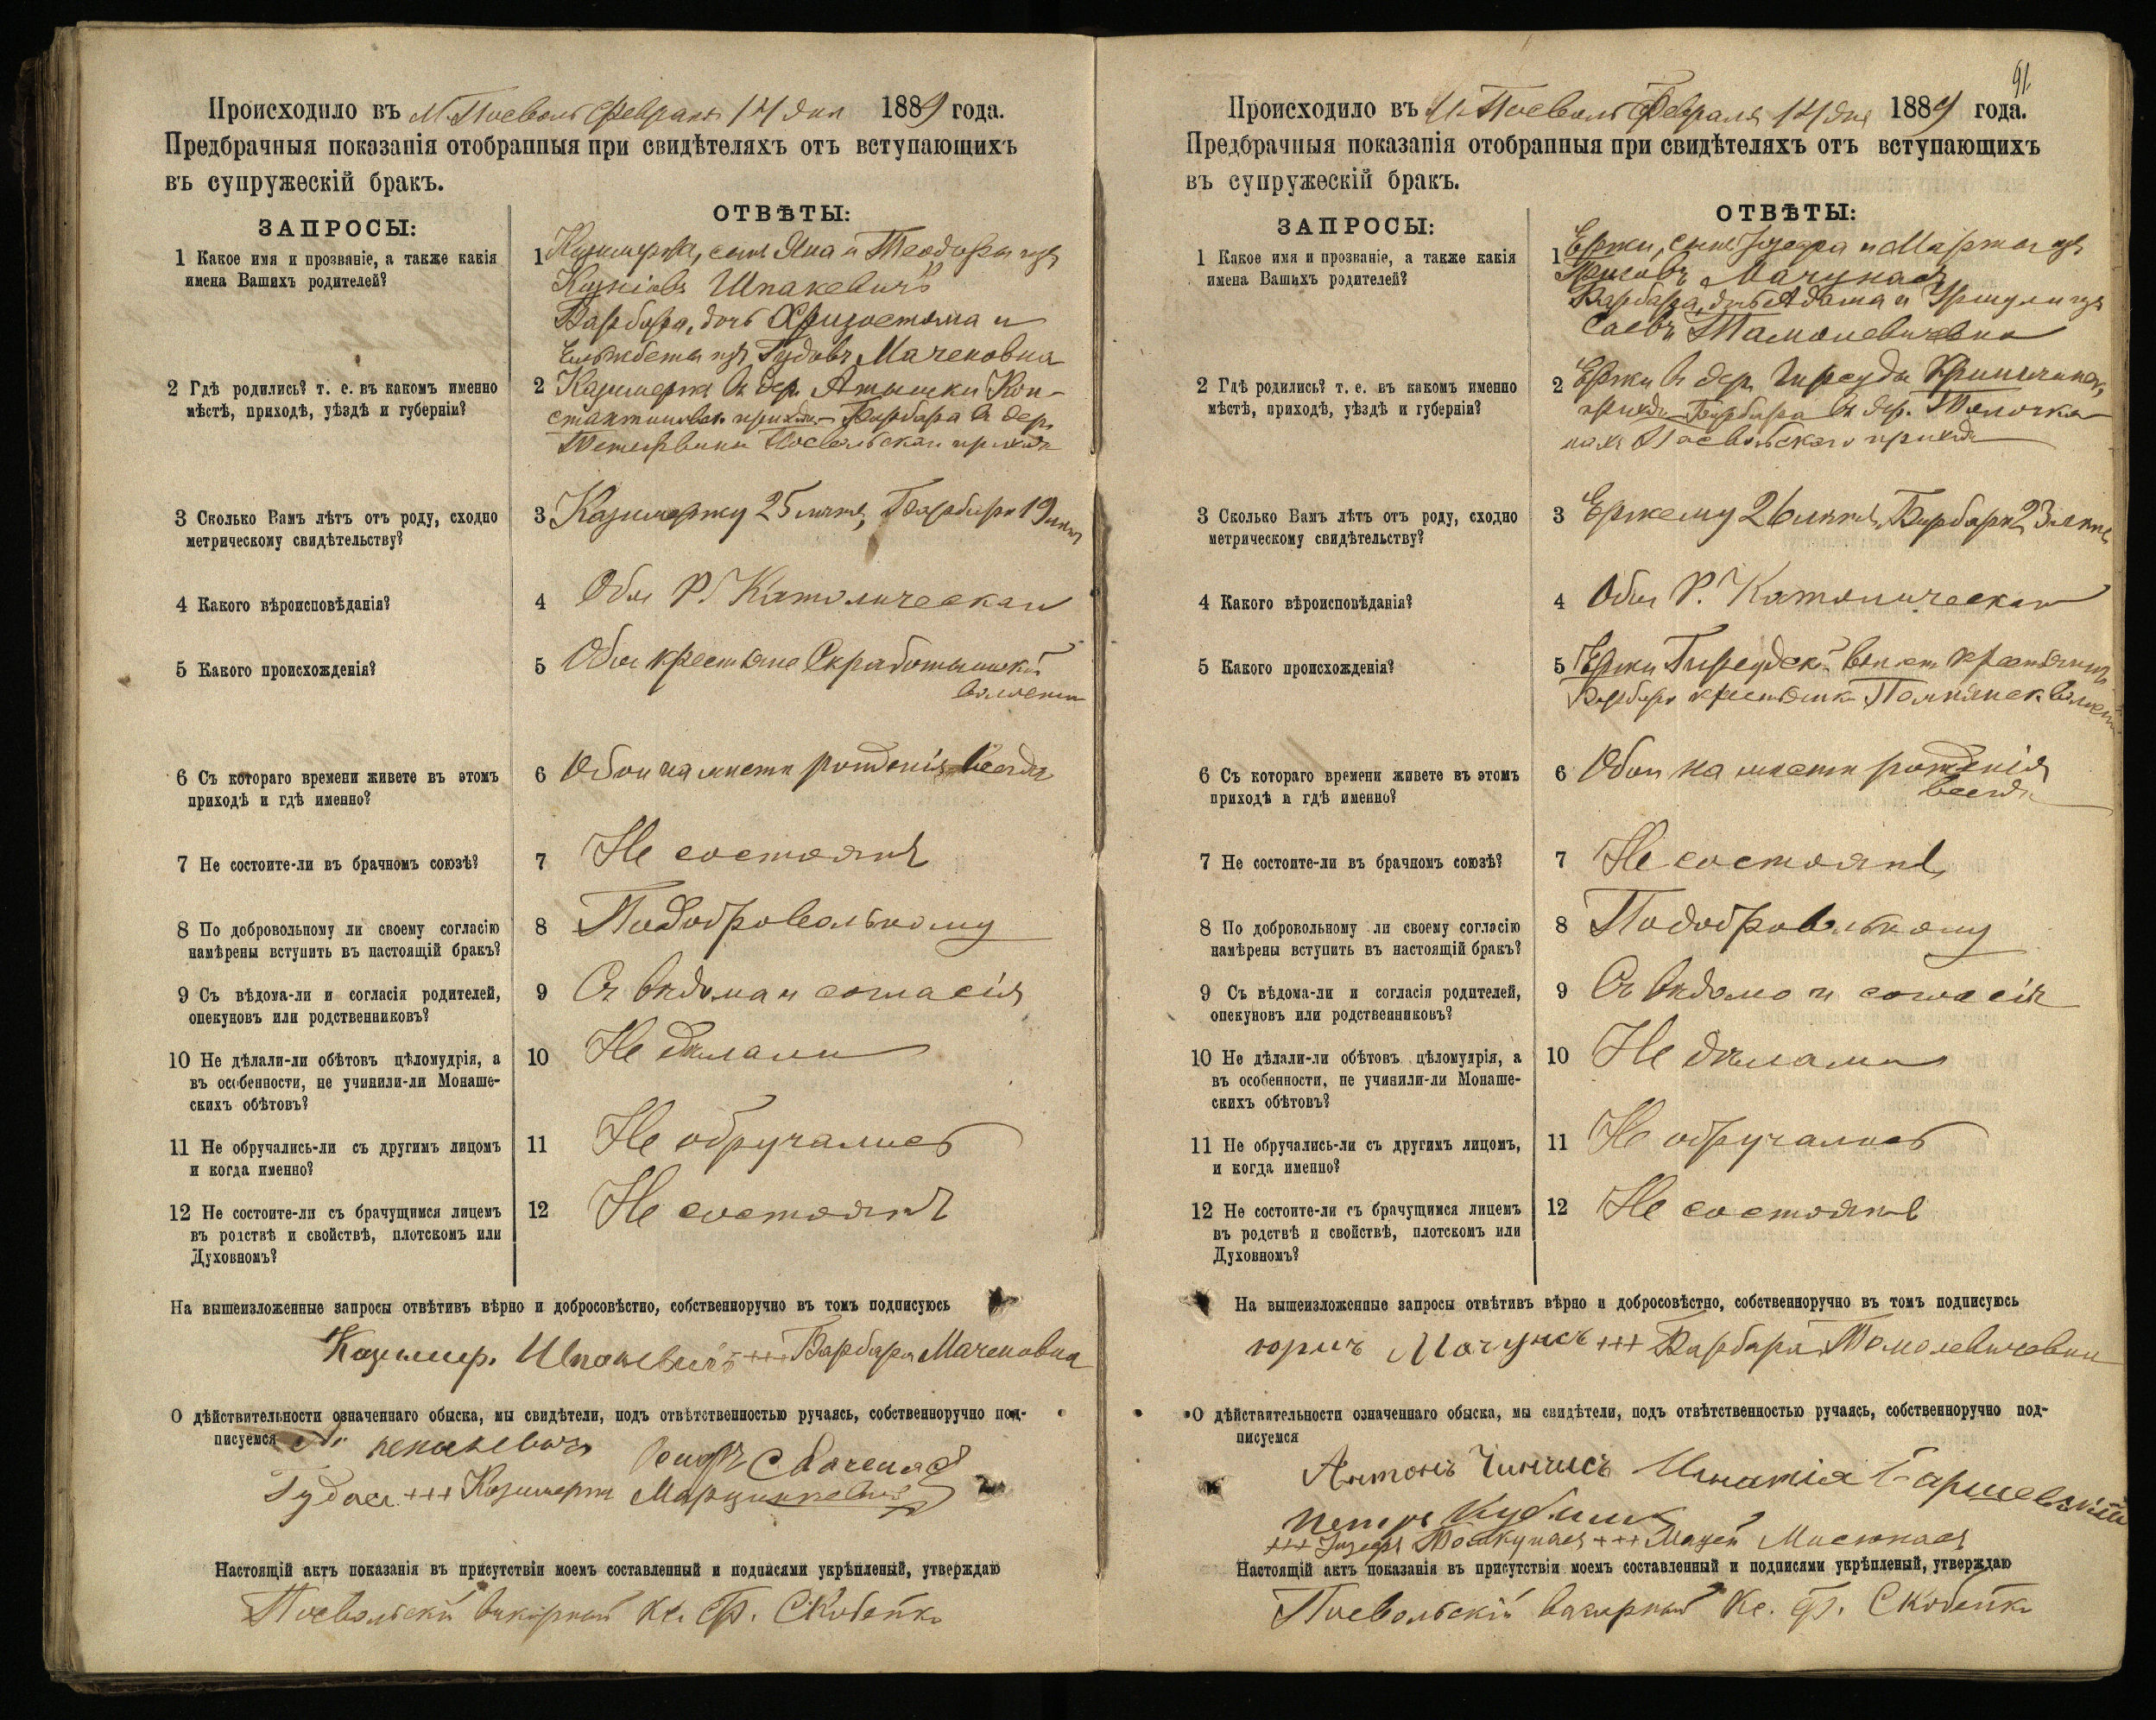 Происходило въ М. Посволь Февраля 14 дня 1889 года.
Предбрачныя показанія отобранныя при свидѣтеляхъ отъ вступающихъ
въ супружескій бракъ.
ЗАПРОСЫ:
ОТВѢТЫ:
1 Какое имя и прозваніе, а также какія
имена Вашихъ родителей?
1 Казимержа, сынъ Яна и Теодоры изъ
Шпакевичъ
Барбара, дочь Хризостома и
Ельжбеты изъ Гудовъ Маченовна
2 Гдѣ родились? т. е. въ какомъ именно
мѣстѣ, приходѣ, уѣздѣ и губерніи?
2 Казимержа въ дер. Кон-
стантиновск. прихода Барбара въ дер.
Посвольскаго прихода
3 Сколько Вамъ лѣтъ отъ роду, сходно
метрическому свидѣтельству?
3 Казимержу 25 лѣтъ, Барбарѣ 19 лѣтъ
4 Какого вѣроисповѣданія?
4 Обои Р. Католическаго
5 Какого происхожденія?
5 Обои крестьяне Скработышской
волости
6 Съ котораго времени живете въ этомъ
приходѣ и гдѣ именно?
6 Обои на мѣстѣ рожденія всегда
7 Не состоите-ли въ брачномъ союзѣ?
7 Не состоятъ
8 По добровольному ли своему согласію
намѣрены вступить въ настоящій бракъ?
8 По добровольному
9 Съ вѣдома-ли и согласія родителей,
опекуновъ или родственниковъ?
9 Съ вѣдома и согласія
10 Не дѣлали-ли обѣтовъ цѣломудрія, а
въ особенности, не учинили-ли Монаше-
скихъ обѣтовъ?
10 Не дѣлали
11 Не обручались-ли съ другимъ лицомъ
и когда именно?
11 Не обручались
12 Не состоите-ли съ брачущимся лицемъ
въ родствѣ и свойствѣ, плотскомъ или
Духовномъ?
12 Не состоятъ
На вышеизложенные запросы отвѣтивъ вѣрно и добросовѣстно, собственноручно въ томъ подписуюсь
Казимир. Шпакевичъ +++ Барбара Маченовна
О дѣйствительности означеннаго обыска, мы свидѣтели, подъ отвѣтственностью ручаясь, собственноручно под-
писуемся
Гудас +++ Казимержа Марцинкевичъ
Настоящій актъ показанія въ присутствіи моемъ составленный и подписями укрѣпленый, утверждаю
Посвольскій викарный Кс. Ф. Скобейко
91.
Происходило въ М. Посволь Февраля 14 дня 1889 года.
Предбрачныя показанія отобранныя при свидѣтеляхъ отъ вступающихъ
въ супружескій бракъ.
ЗАПРОСЫ:
ОТВѢТЫ:
1 Какое имя и прозваніе, а также какія
имена Вашихъ родителей?
1 Ержи, сынъ Іозефа и Марты изъ
Мачунасъ
Барбара, дочь Адама и Уршули изъ
Тамолевичевна
2 Гдѣ родились? т. е. въ какомъ именно
мѣстѣ, приходѣ, уѣздѣ и губерніи?
2 Ержи въ дер.
прихода Барбара въ дер.
Посвольскаго прихода
3 Сколько Вамъ лѣтъ отъ роду, сходно
метрическому свидѣтельству?
3 Ержему 26 лѣтъ, Барбарѣ 23 лѣтъ
4 Какого вѣроисповѣданія?
4 Обои Р. Католическаго
5 Какого происхожденія?
5 Ержи волост. крестьянинъ
Барбара крестьянка волости
6 Съ котораго времени живете въ этомъ
приходѣ и гдѣ именно?
6 Обои на мѣстѣ рожденія
всегда
7 Не состоите-ли въ брачномъ союзѣ?
7 Не состоятъ
8 По добровольному ли своему согласію
намѣрены вступить въ настоящій бракъ?
8 По добровольному
9 Съ вѣдома-ли и согласія родителей,
опекуновъ или родственниковъ?
9 Съ вѣдома и согласія
10 Не дѣлали-ли обѣтовъ цѣломудрія, а
въ особенности, не учинили-ли Монаше-
скихъ обѣтовъ?
10 Не дѣлали
11 Не обручались-ли съ другимъ лицомъ,
и когда именно?
11 Не обручались
12 Не состоите-ли съ брачущимся лицемъ
въ родствѣ и свойствѣ, плотскомъ или
Духовномъ?
12 Не состоятъ
На вышеизложенные запросы отвѣтивъ вѣрно и добросовѣстно, собственноручно въ томъ подписуюсь
Мачунсъ +++ Барбара Томолевичевна
О дѣйствительности означеннаго обыска, мы свидѣтели, подъ отвѣтственностью ручаясь, собственноручно под-
писуемся
Антонъ Чинчисъ
+++ Іозефъ +++ Мацей
Настоящій актъ показанія въ присутствіи моемъ составленный и подписями укрѣпленый, утверждаю
Посвольскій викарный Кс. Ф. Скобейко